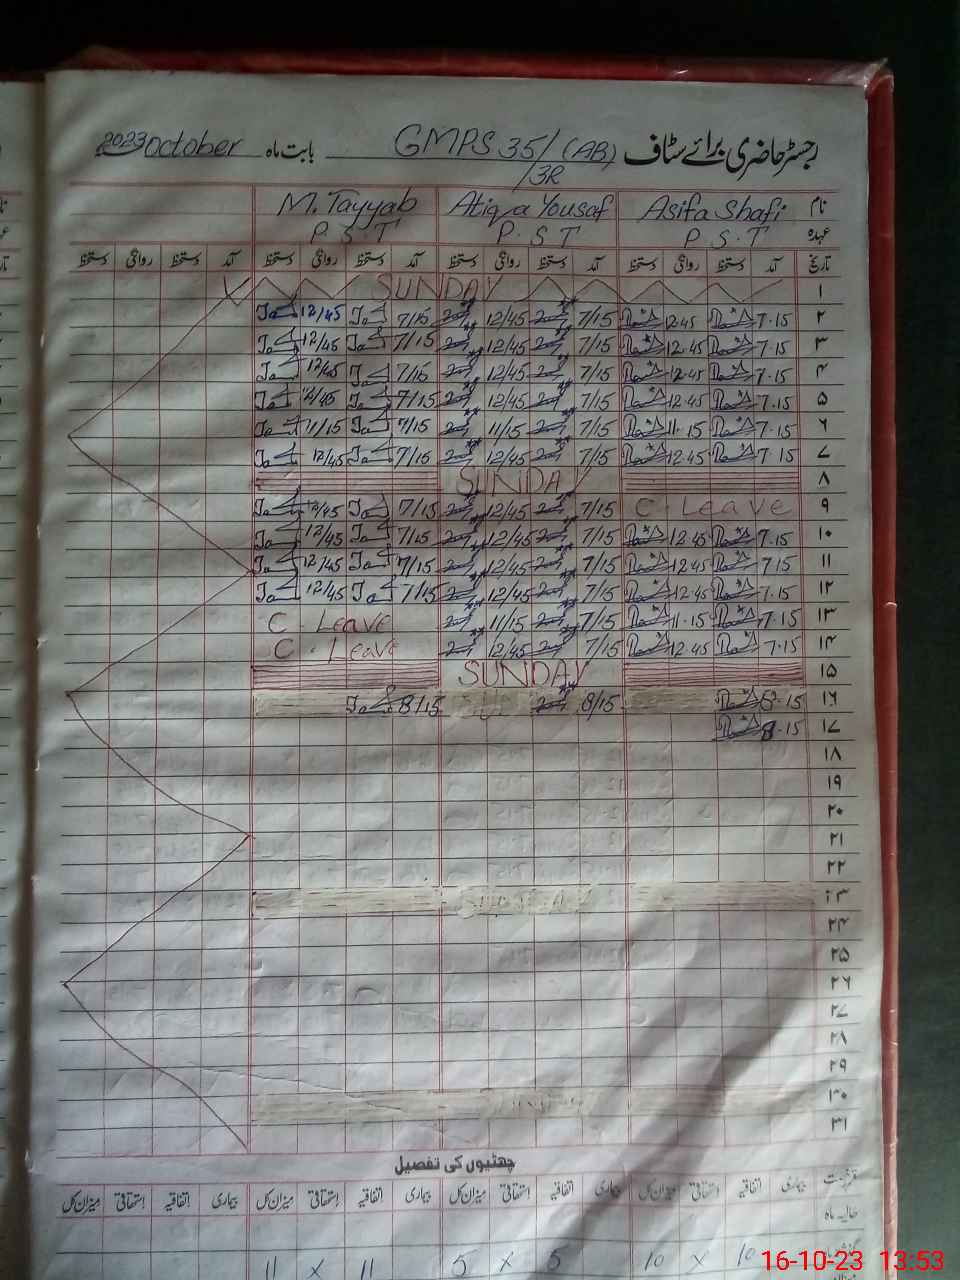 رجسٹر حاضری برائے سٹاف GMPS 35/(AB) /3R بابت ماہ October 2023
نام Asifa Shafi Atiqa Yousaf M. Tayyab
عہدہ P.S.T P.S.T P.S.T
تاریخ آمد دستخط روانگی دستخط آمد دستخط روانگی دستخط آمد دستخط روانگی دستخط آمد دستخط روانگی دستخط
۱ SUNDAY
۲ 7.15 12.45 7/15 12/45 7/15 12/45
۳ 7.15 12.45 7/15 12/45 7/15 12/45
۴ 7.15 12.45 7/15 12/45 7/15 12/45
۵ 7.15 12.45 7/15 12/45 7/15 12/45
۶ 7.15 11.15 7/15 11/15 7/15 11/15
۷ 7.15 12.45 7/15 12/45 7/15 12/45
۸ SUNDAY
۹ C. Leave 7/15 12/45 7/15 12/45
۱۰ 7.15 12.45 7/15 12/45 7/15 12/45
۱۱ 7.15 12.45 7/15 12/45 7/15 12/45
۱۲ 7.15 12.45 7/15 12/45 7/15 12/45
۱۳ 7.15 11.15 7/15 11/15 C. Leave
۱۴ 7.15 12.45 7/15 12/45 C. Leave
۱۵ SUNDAY
۱۶ 8.15 8/15 8/15
۱۷ 8.15
۱۸
۱۹
۲۰
۲۱
۲۲
۲۳
۲۴
۲۵
۲۶
۲۷
۲۸
۲۹
۳۰
۳۱
چھٹیوں کی تفصیل
بیماری اتفاقیہ استحقاقی میزان کل بیماری اتفاقیہ استحقاقی میزان کل بیماری اتفاقیہ استحقاقی میزان کل بیماری اتفاقیہ استحقاقی میزان کل
حالیہ ماہ
10 x 10 5 x 5 11 x 11
16-10-23 13:53